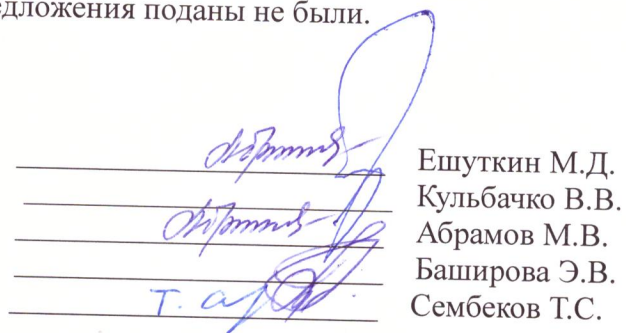 едложения поданы не были.
Ешуткин М.Д.
Кульбачко В.В.
Абрамов М.В.
Баширова Э.В.
Сембеков Т.С.